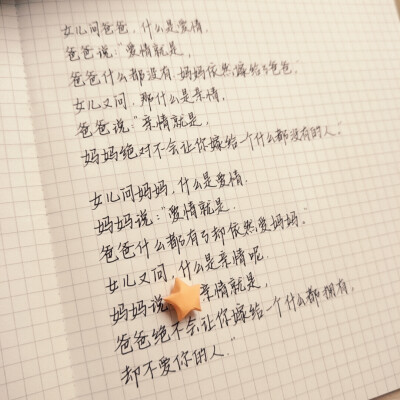 女儿问爸爸,什么是爱情,
爸爸说:"爱情就是,
爸爸什么都没有,妈妈依然嫁给了爸爸."
女儿又问,那什么是亲情,
爸爸说:"亲情就是,
妈妈绝对不会让你嫁给一个什么都没有的人."
女儿问妈妈,什么是爱情,
妈妈说:"爱情就是,
爸爸什么都有了却依然爱妈妈."
女儿又问,什么是亲情呢,
妈妈说 亲情就是,
爸爸绝不会让你嫁给一个什么都拥有,
却不爱你的人."